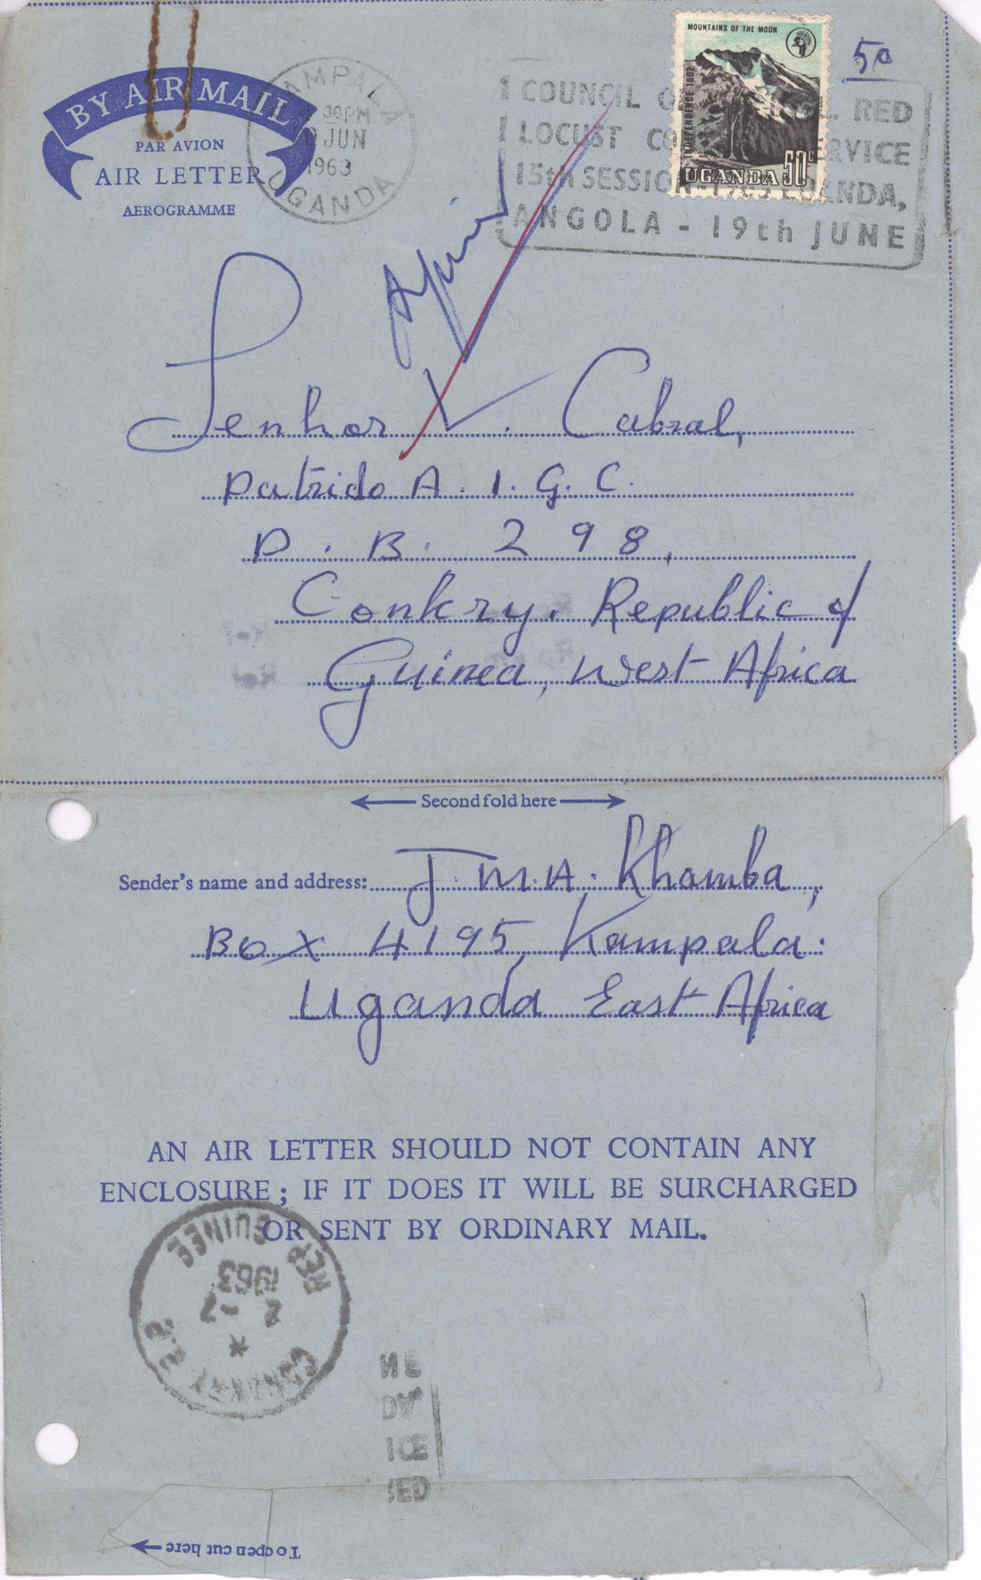 BY AIR MAIL
PAR AVION
AIR LETTER
AEROGRAMME
KAMPALA
30PM
JUN
1963
UGANDA
MOUNTAINS OF THE MOON
INDEPENDENCE 1962
UGANDA 50c
COUNCIL RED
LOCUST
15th SESSION
ANGOLA - 19th JUNE
50
Senhor V. Cabral,
Patrido A. I. G. C.
P. B. 298,
Conkry. Republic of
Guinea, West Africa
Second fold here
Sender's name and address: J. M. A. Khamba,
Box 4195, Kampala.
Uganda East Africa
AN AIR LETTER SHOULD NOT CONTAIN ANY
ENCLOSURE ; IF IT DOES IT WILL BE SURCHARGED
OR SENT BY ORDINARY MAIL.
CONAKRY R.P.
2 -7
1963
REP GUINEE
ICE
To open cut here